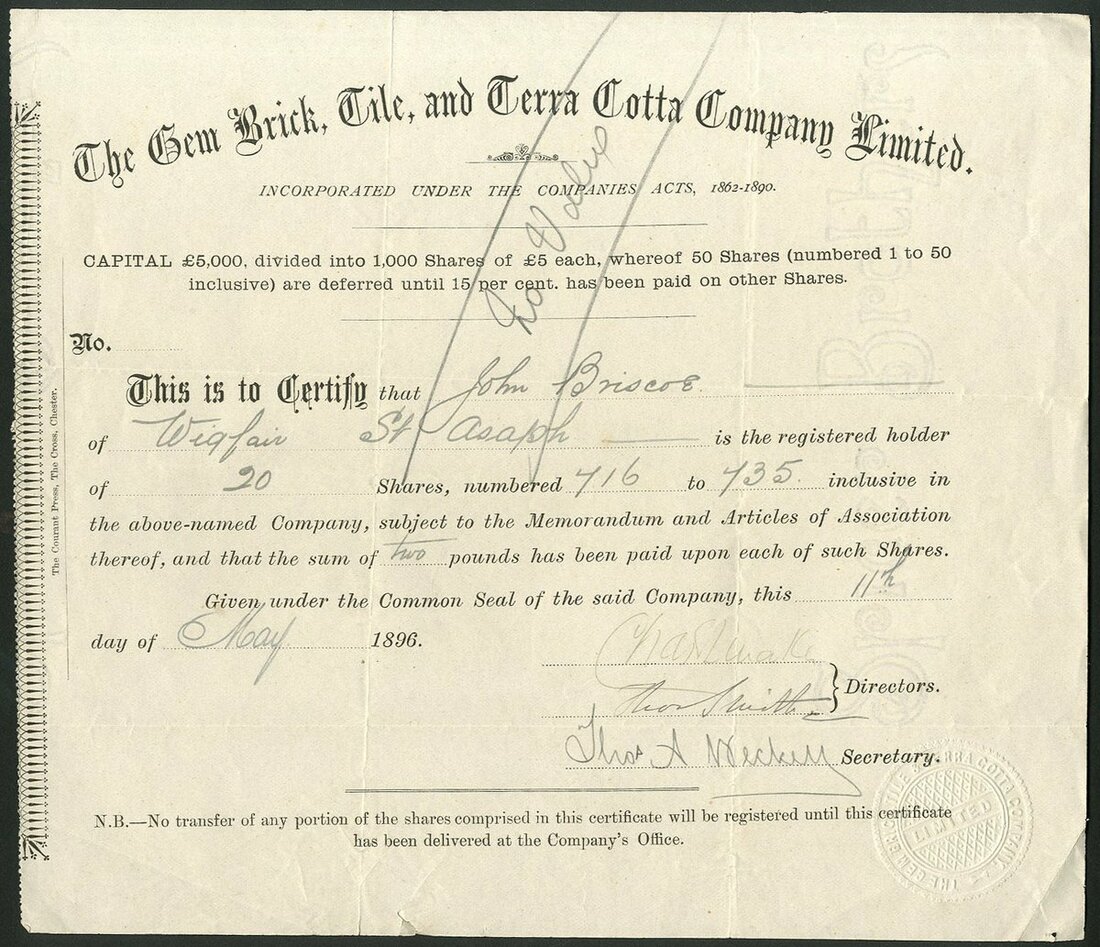 The Gem Brick, Tile, and Terra Cotta Company Limited.
INCORPORATED UNDER THE COMPANIES ACTS, 1862-1890.
No Value
CAPITAL £5,000, divided into 1,000 Shares of £5 each, whereof 50 Shares (numbered 1 to 50
inclusive) are deferred until 15 per cent. has been paid on other Shares.
No.
This is to Certify that John Briscoe
of Wigfair St Asaph is the registered holder
of 20 Shares, numbered 716 to 735 inclusive in
the above-named Company, subject to the Memorandum and Articles of Association
thereof, and that the sum of two pounds has been paid upon each of such Shares.
Given under the Common Seal of the said Company, this 11th
day of May 1896.
Thos Smith
Directors.
Thos A Secretary.
N.B.—No transfer of any portion of the shares comprised in this certificate will be registered until this certificate
has been delivered at the Company's Office.
The Courant Press, The Cross, Chester.
THE GEM BRICK TILE & TERRA COTTA COMPANY
LIMITED